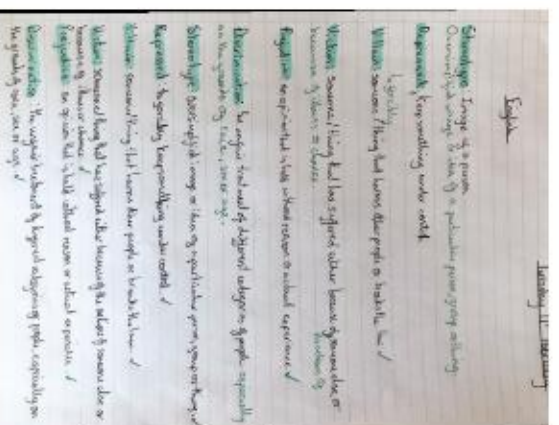 Tuesday 11th February
English
Stereotype: Image of a person
Oversimplified image or idea of a particular person, group or thing.
Represent: Keep something under control
forcibly
Villain: someone / thing that harms other people or breaks the law ✓
Victim: someone / thing that has suffered either because of someone else or
because of illness or chance.
Prejudice: an opinion that is held without reason or actual experience ✓
Discrimination: the unjust treatment of different categories of people especially
on the grounds of race, sex or age.
Stereotype: oversimplified image or idea of a particular person, group or thing ✓
Repressed: to forcibly keep something under control ✓
Villain: someone/thing that harms other people or breaks the law ✓
Victim: someone/thing that has suffered either because of the actions of someone else or
because of illness or chance ✓
Prejudice: an opinion that is held without reason or actual experience ✓
Discrimination: the unjust treatment of different categories of people, especially on
the grounds of race, sex or age. ✓